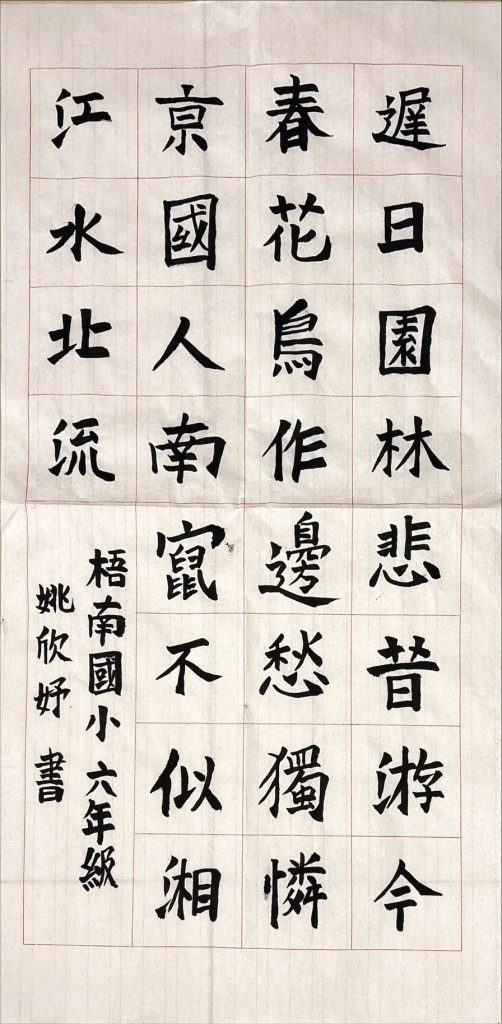 遲日園林悲昔游今
春花鳥作邊愁獨憐
京國人南竄不似湘
江水北流
梧南國小六年級
姚欣妤書